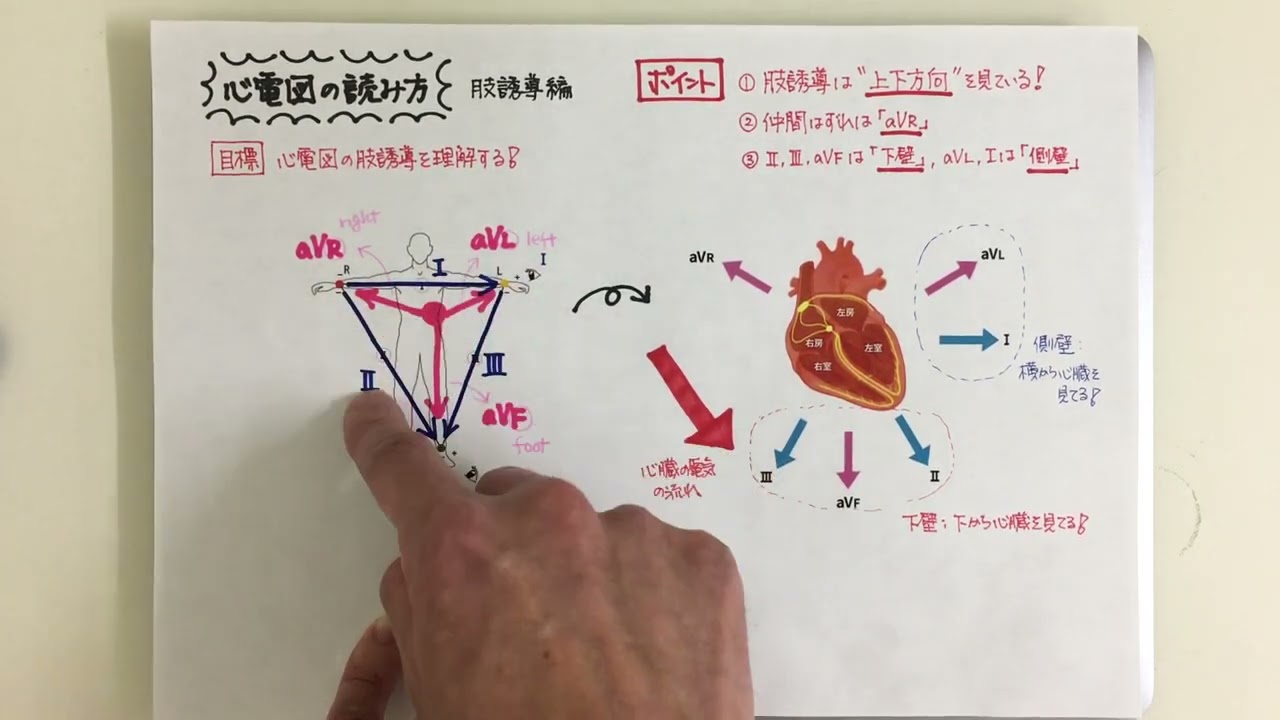 心電図の読み方 肢誘導編
目標 心電図の肢誘導を理解する!
ポイント ① 肢誘導は"上下方向"を見ている!
② 仲間はずれは「aVR」
③ Ⅱ, Ⅲ, aVFは「下壁」, aVL, Ⅰは「側壁」
right
aVR
aVL left
Ⅰ
-R
Ⅰ
L +
Ⅱ
Ⅲ
aVF
foot
+
aVR
aVL
Ⅰ
左房
右房
左室
右室
側壁:
横から心臓を
見てる!
心臓の電気
の流れ
Ⅲ
aVF
Ⅱ
下壁:下から心臓を見てる!